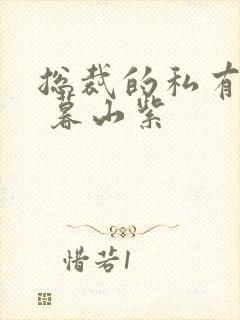 总裁的私有
暮山紫
惜若1